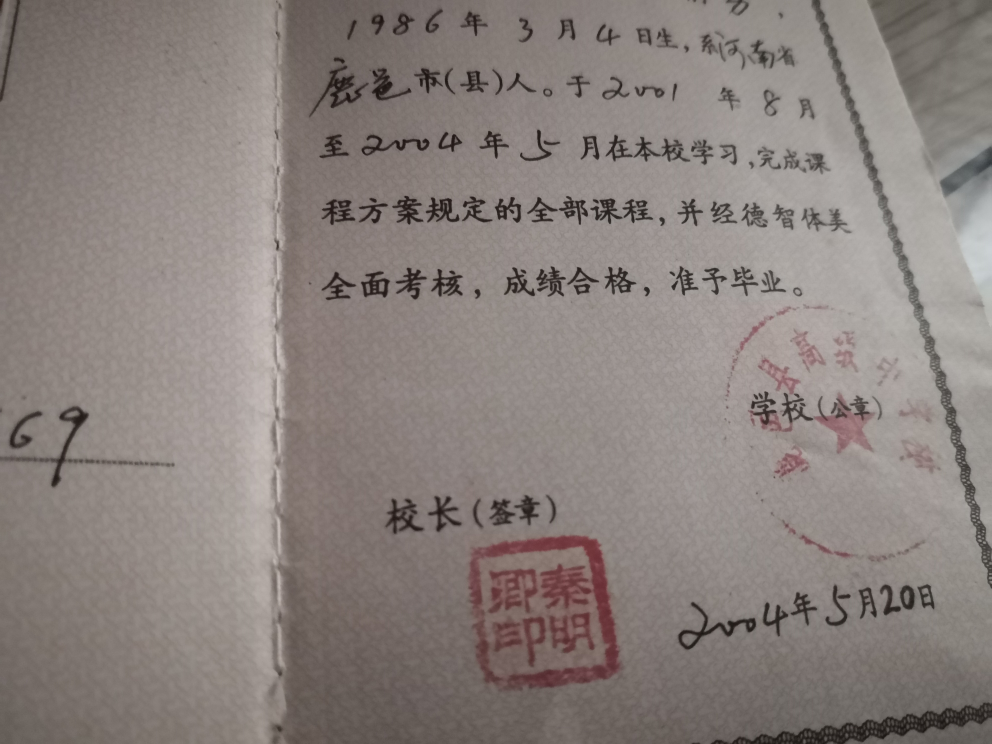 1986年3月4日生,系河南省
鹿邑市(县)人。于2001年8月
至2004年5月在本校学习,完成课
程方案规定的全部课程,并经德智体美
全面考核,成绩合格,准予毕业。
县高级中学校
学校(公章)
69
校长(签章)
秦明
卿印
2004年5月20日